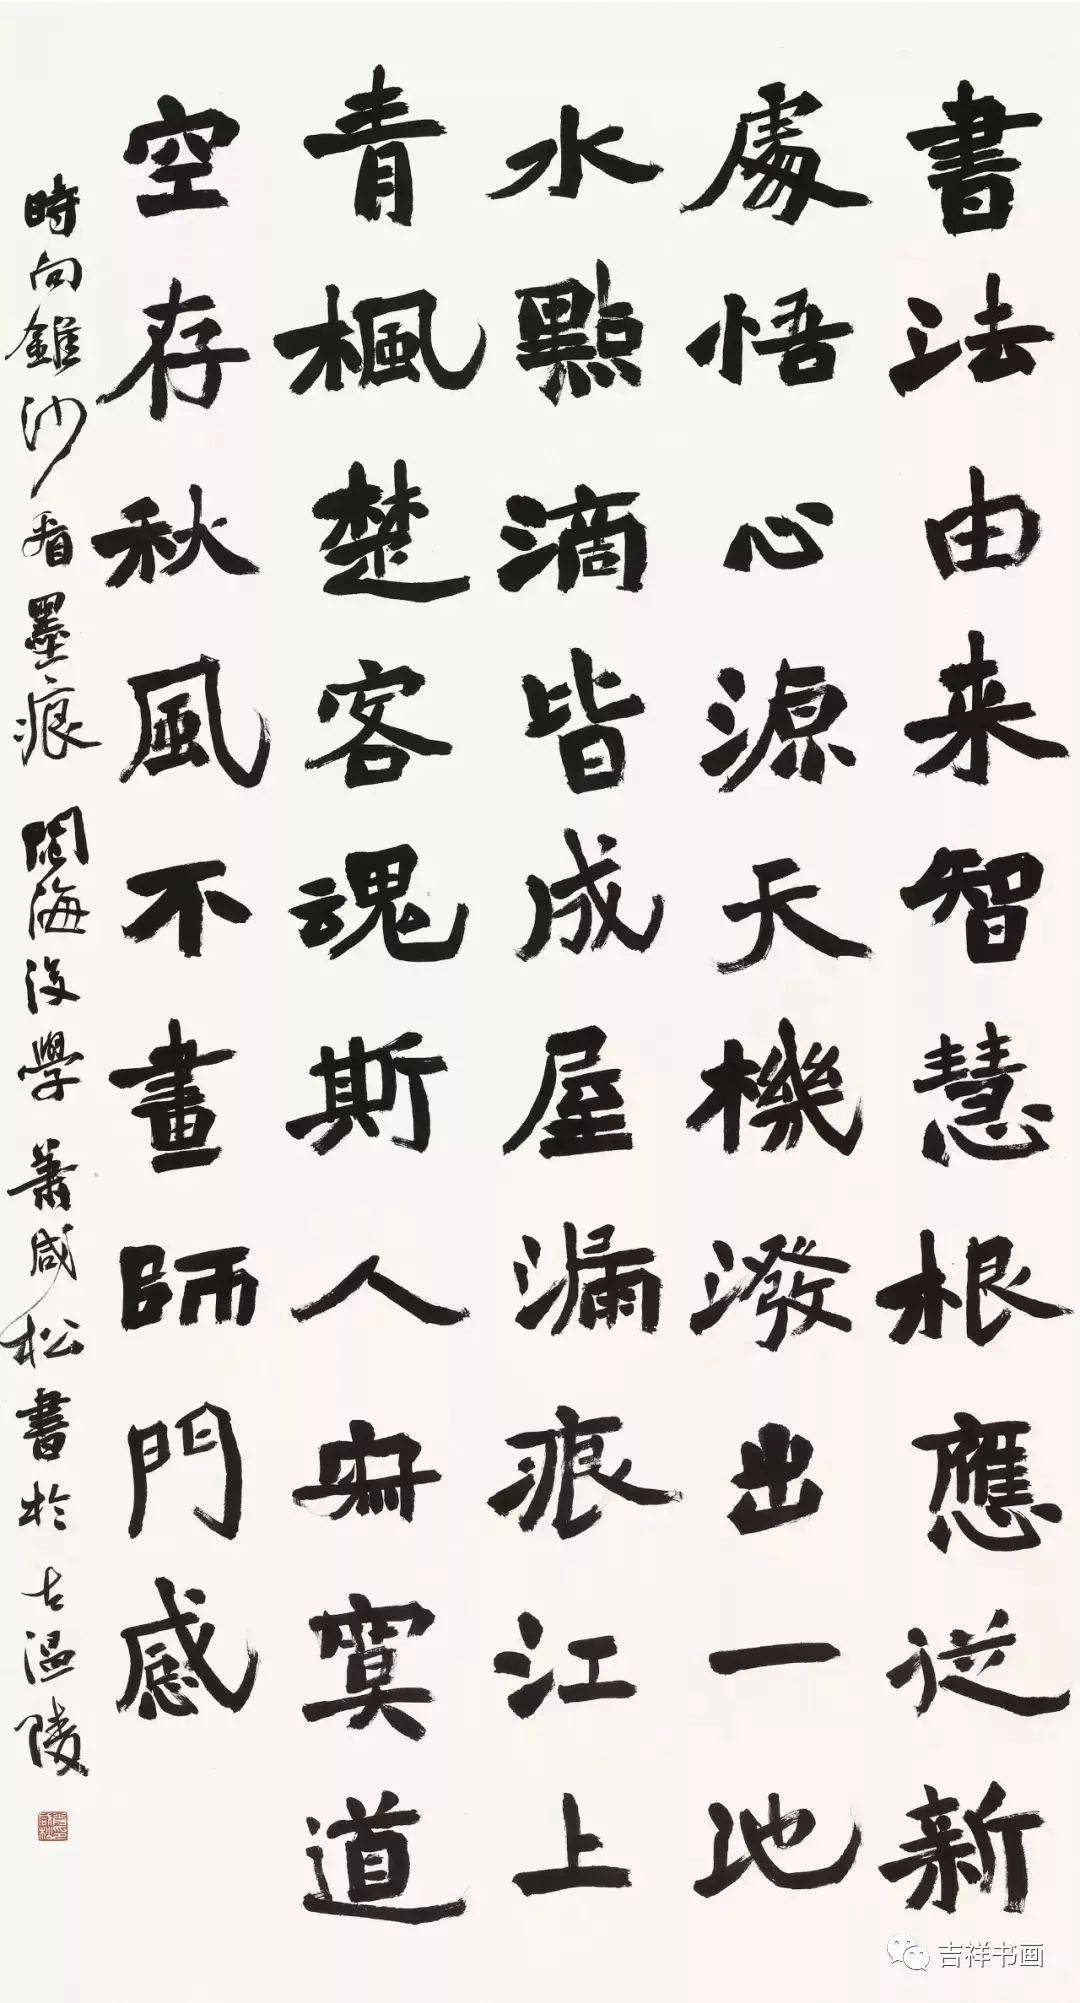 書法由来智慧根應從新
處悟心源天機潑出一地
水點滴皆成屋漏痕江上
青楓楚客魂斯人寂寞道
空存秋風不畫師門感
時向錐沙看墨痕 閩海後學 蕭咸松書於古温陵
吉祥书画